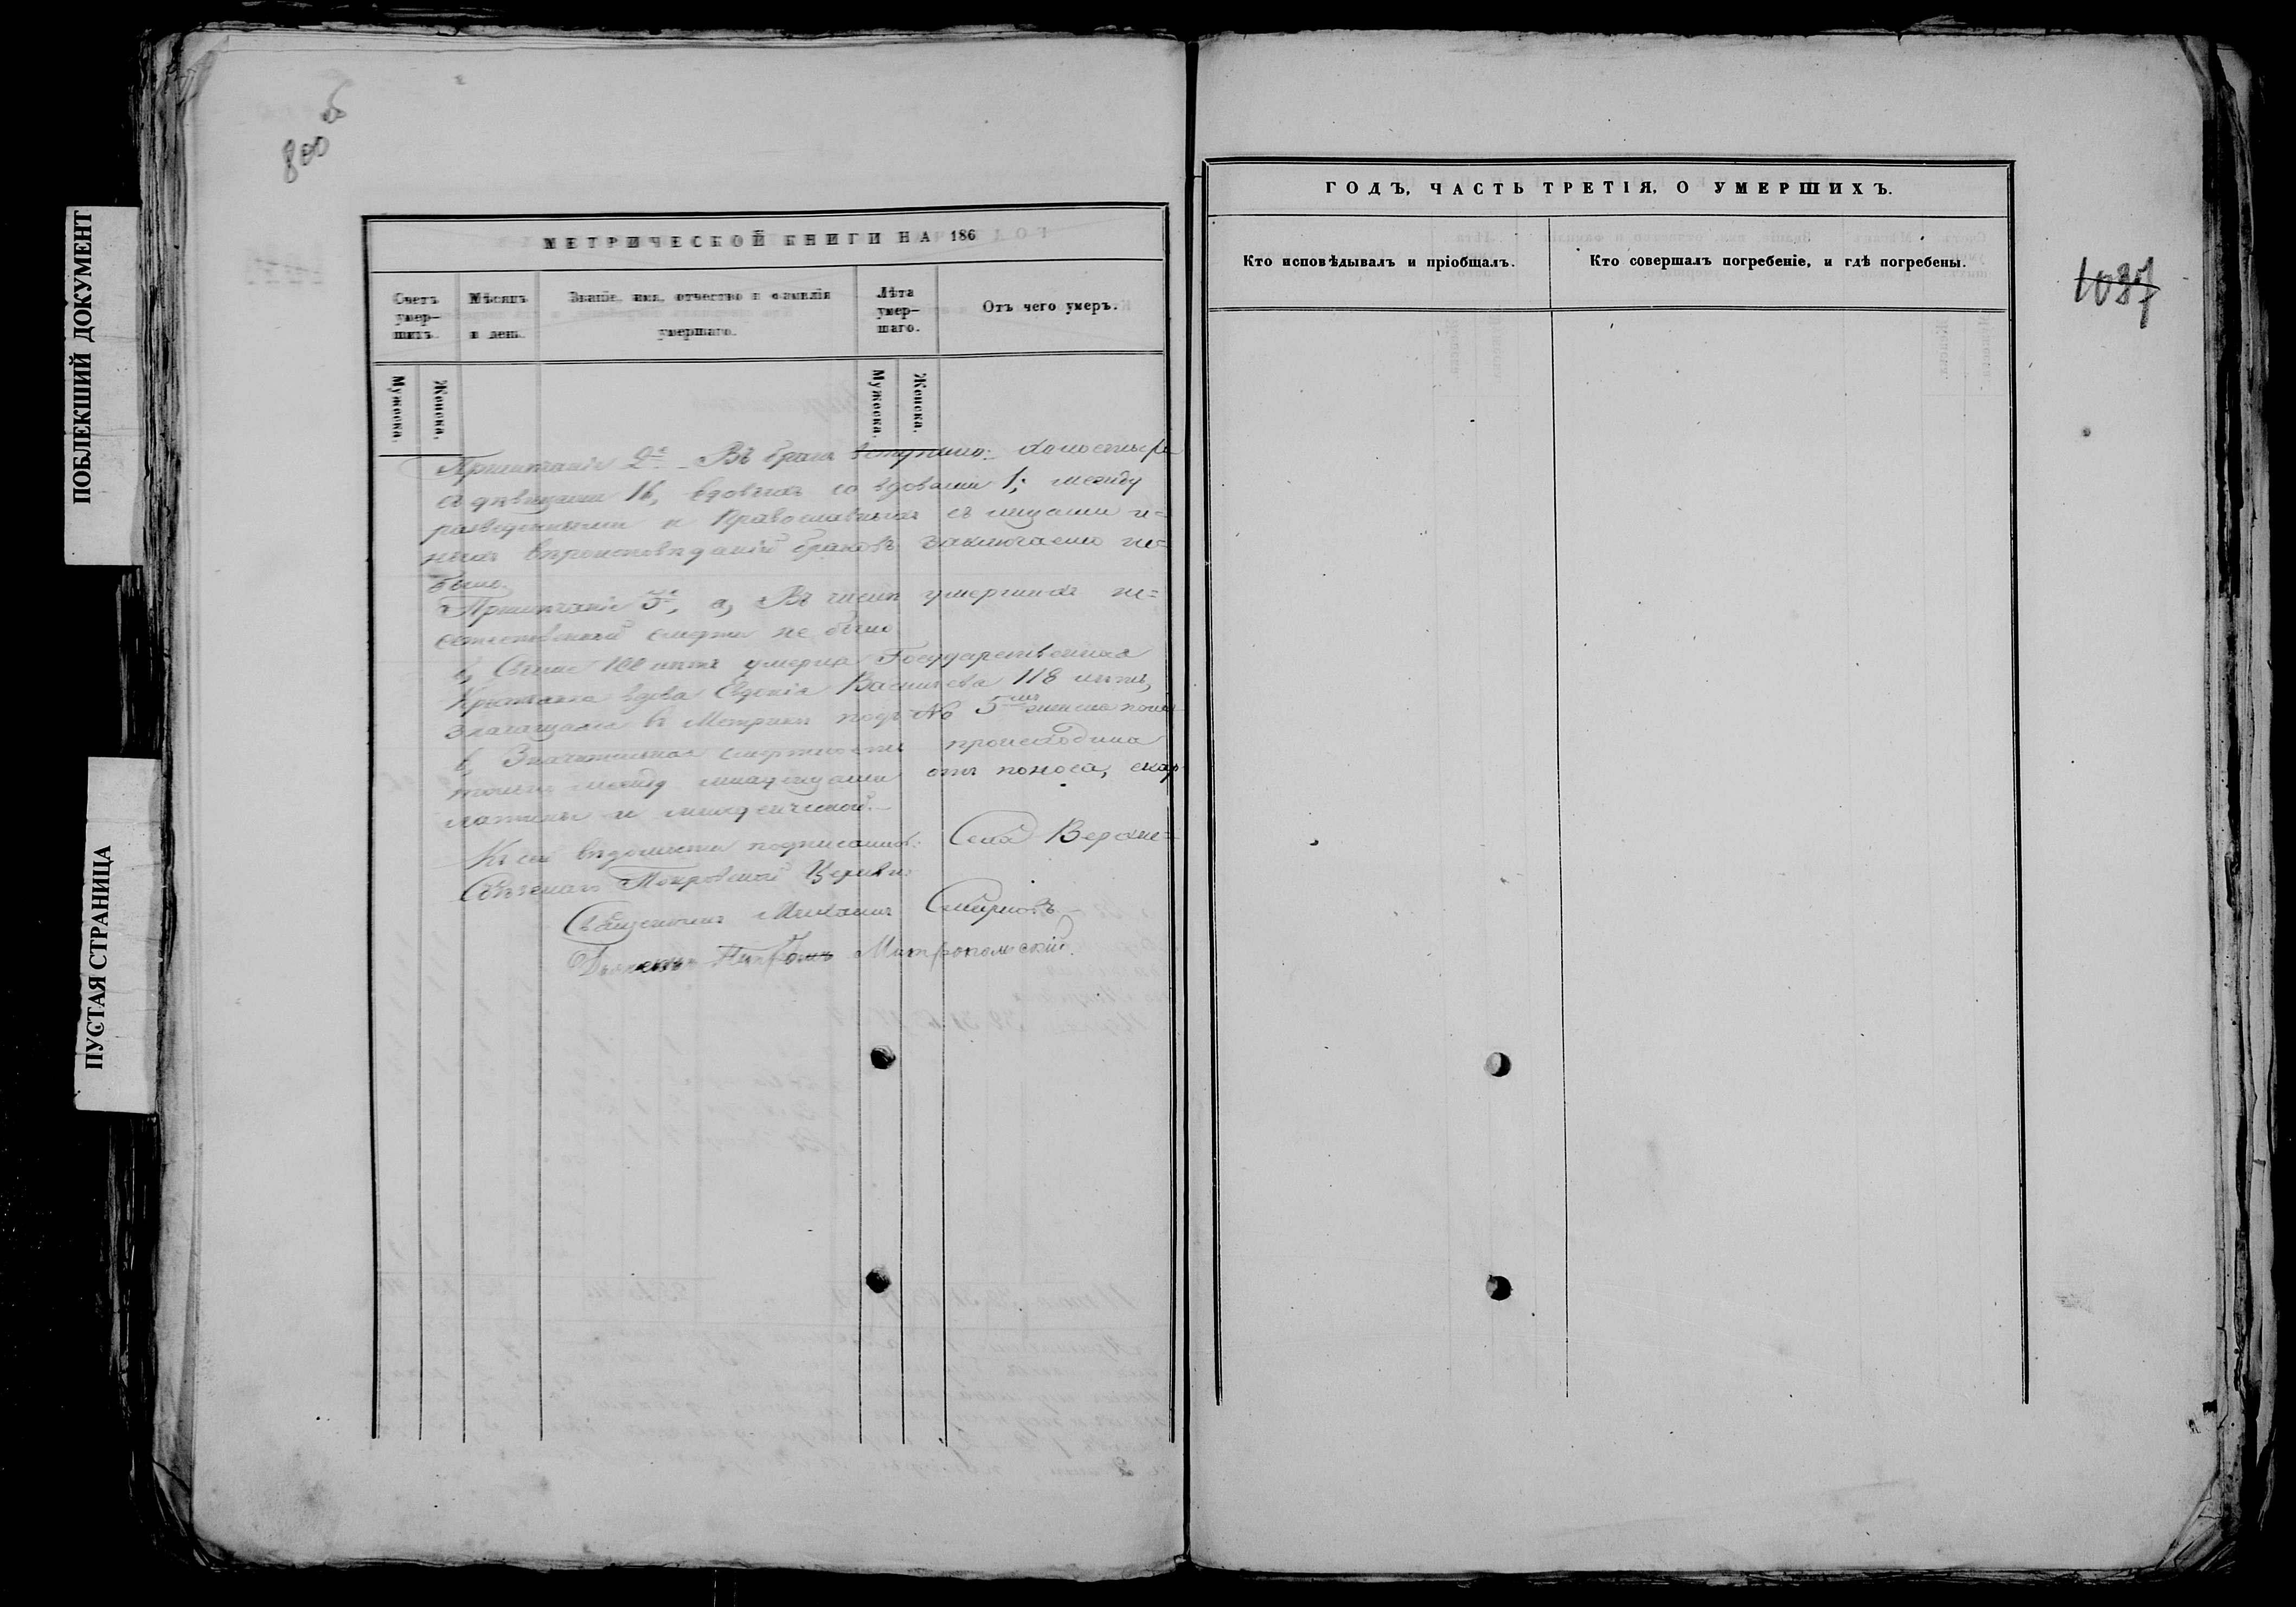 ПОБЛЕКШИЙ ДОКУМЕНТ
ПУСТАЯ СТРАНИЦА
800
МЕТРИЧЕСКОЙ КНИГИ НА 186
Счетъ умер-шихъ.
Мѣсяцъ и день.
Званіе, имя, отчество и фамилія умершаго.
Лѣта умер-шаго.
Отъ чего умеръ.
Мужеска.
Женска.
Мужеска.
Женска.
Примѣчаніе 2е. Въ бракъ вступило: холостыхъ
съ дѣвицами 16, вдовыхъ со вдовами 1; между
разведенными и Православныхъ съ лицами и=
ныхъ вѣроисповѣданій браковъ заключаемо не=
было.
Примѣчаніе 3е, а, Въ числѣ умершихъ не=
естественной смерти не было
б, Свыше 100 лѣтъ умерла Государственная
Крестьянка вдова Евдокія Васильева 118 лѣтъ,
значащаяся въ Метрикѣ подъ № 5мъ
в, Значительная смертность происходила
только между младенцами отъ поноса, скар-
латины и младенческой.
Къ сей вѣдомости подписались: Села Верхне=
Покровской Церкви
Священникъ Михаилъ Смирновъ
Митропольскій.
ГОДЪ, ЧАСТЬ ТРЕТІЯ, О УМЕРШИХЪ.
Кто исповѣдывалъ и пріобщалъ.
Кто совершалъ погребеніе, и гдѣ погребены.
1037